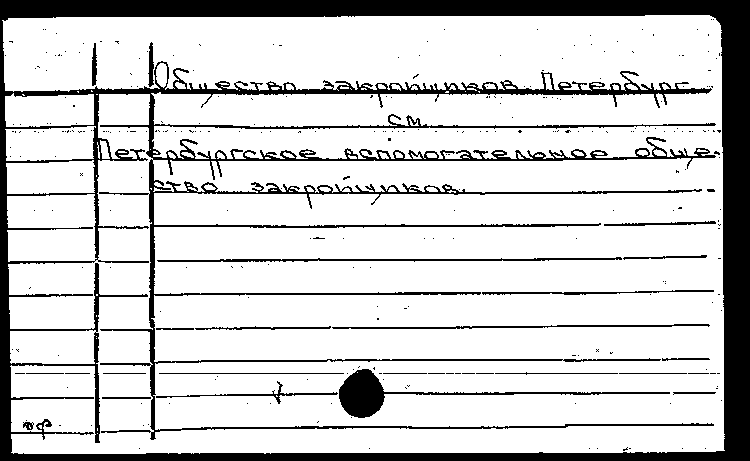 Общество закройщиков. Петербург
см.
Петербургское вспомогательное обще-
ство закройщиков.